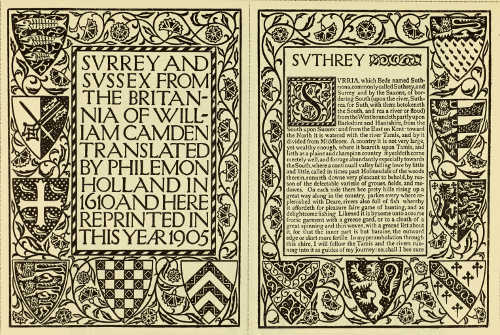 SVRREY AND
SVSSEX FROM
THE BRITAN-
NIA OF WILL-
IAM CAMDEN
TRANSLATED
BY PHILEMON
HOLLAND IN
1610 AND HERE
REPRINTED IN
THIS YEAR 1905
SVTHREY
SVRRIA, which Bede named Suth-
riona, commonly called Suthrey, and
Surrey and by the Saxons, of bor-
dering South upon the river, Suth-
rea, for Suth, with them betokeneth
the South, and rea a river or floud:
from the West boundeth partly upon
Barkshire and Hantshire, from the
South upon Sussex: and from the East on Kent: toward
the North it is watered with the river Tamis, and by it
divided from Middlesex. A country it is not very large,
yet wealthy enough, where it beareth upon Tamis, and
lieth as a plaine and champion country: it yeeldeth corne
meetely well, and forrage abundantly especially towards
the South, where a continuall valley falling low by little
and little, called in times past Holmesdale of the woods
therein, runneth downe very pleasant to behold, by rea-
son of the delectable varietie of groves, fields, and me-
dowes. On each side there bee pretty hills rising up a
great way along in the country, parkes every where re-
plenished with Deere, rivers also full of fish: whereby
it affordeth for pleasure faire game of hunting, and as
delightsome fishing. Likened it is by some unto a course
freize garment with a greene gard, or to a cloath of a
great spinning and thin woven, with a greene list about
it, for that the inner part is but baraine, the outward
edge or skirt more fertile. In my perambulation through
this shire, I will follow the Tamis and the rivers run-
ning into it as guides of my journey: so shall I bee sure